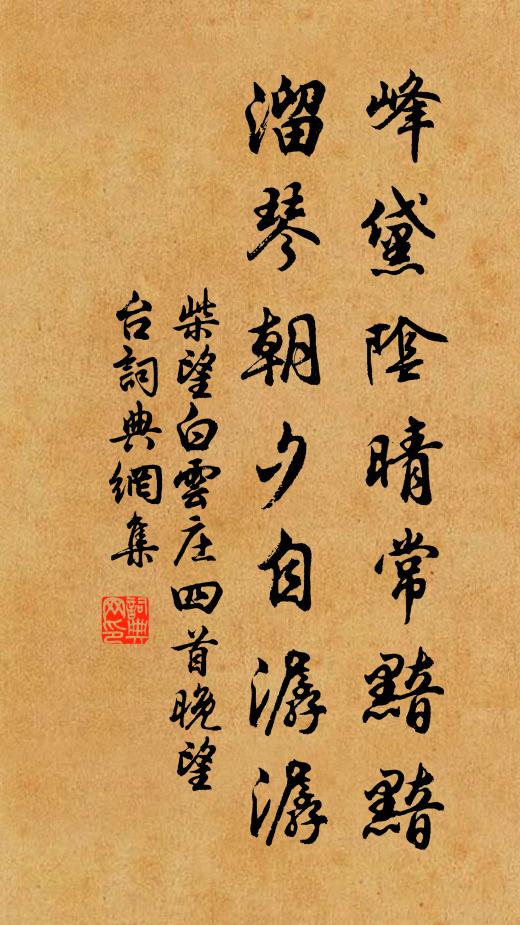 峰黛陰晴常黯黯
溜琴朝夕自潺潺
柴望白雲庄四首晚望
台詞典網集
詞典网印